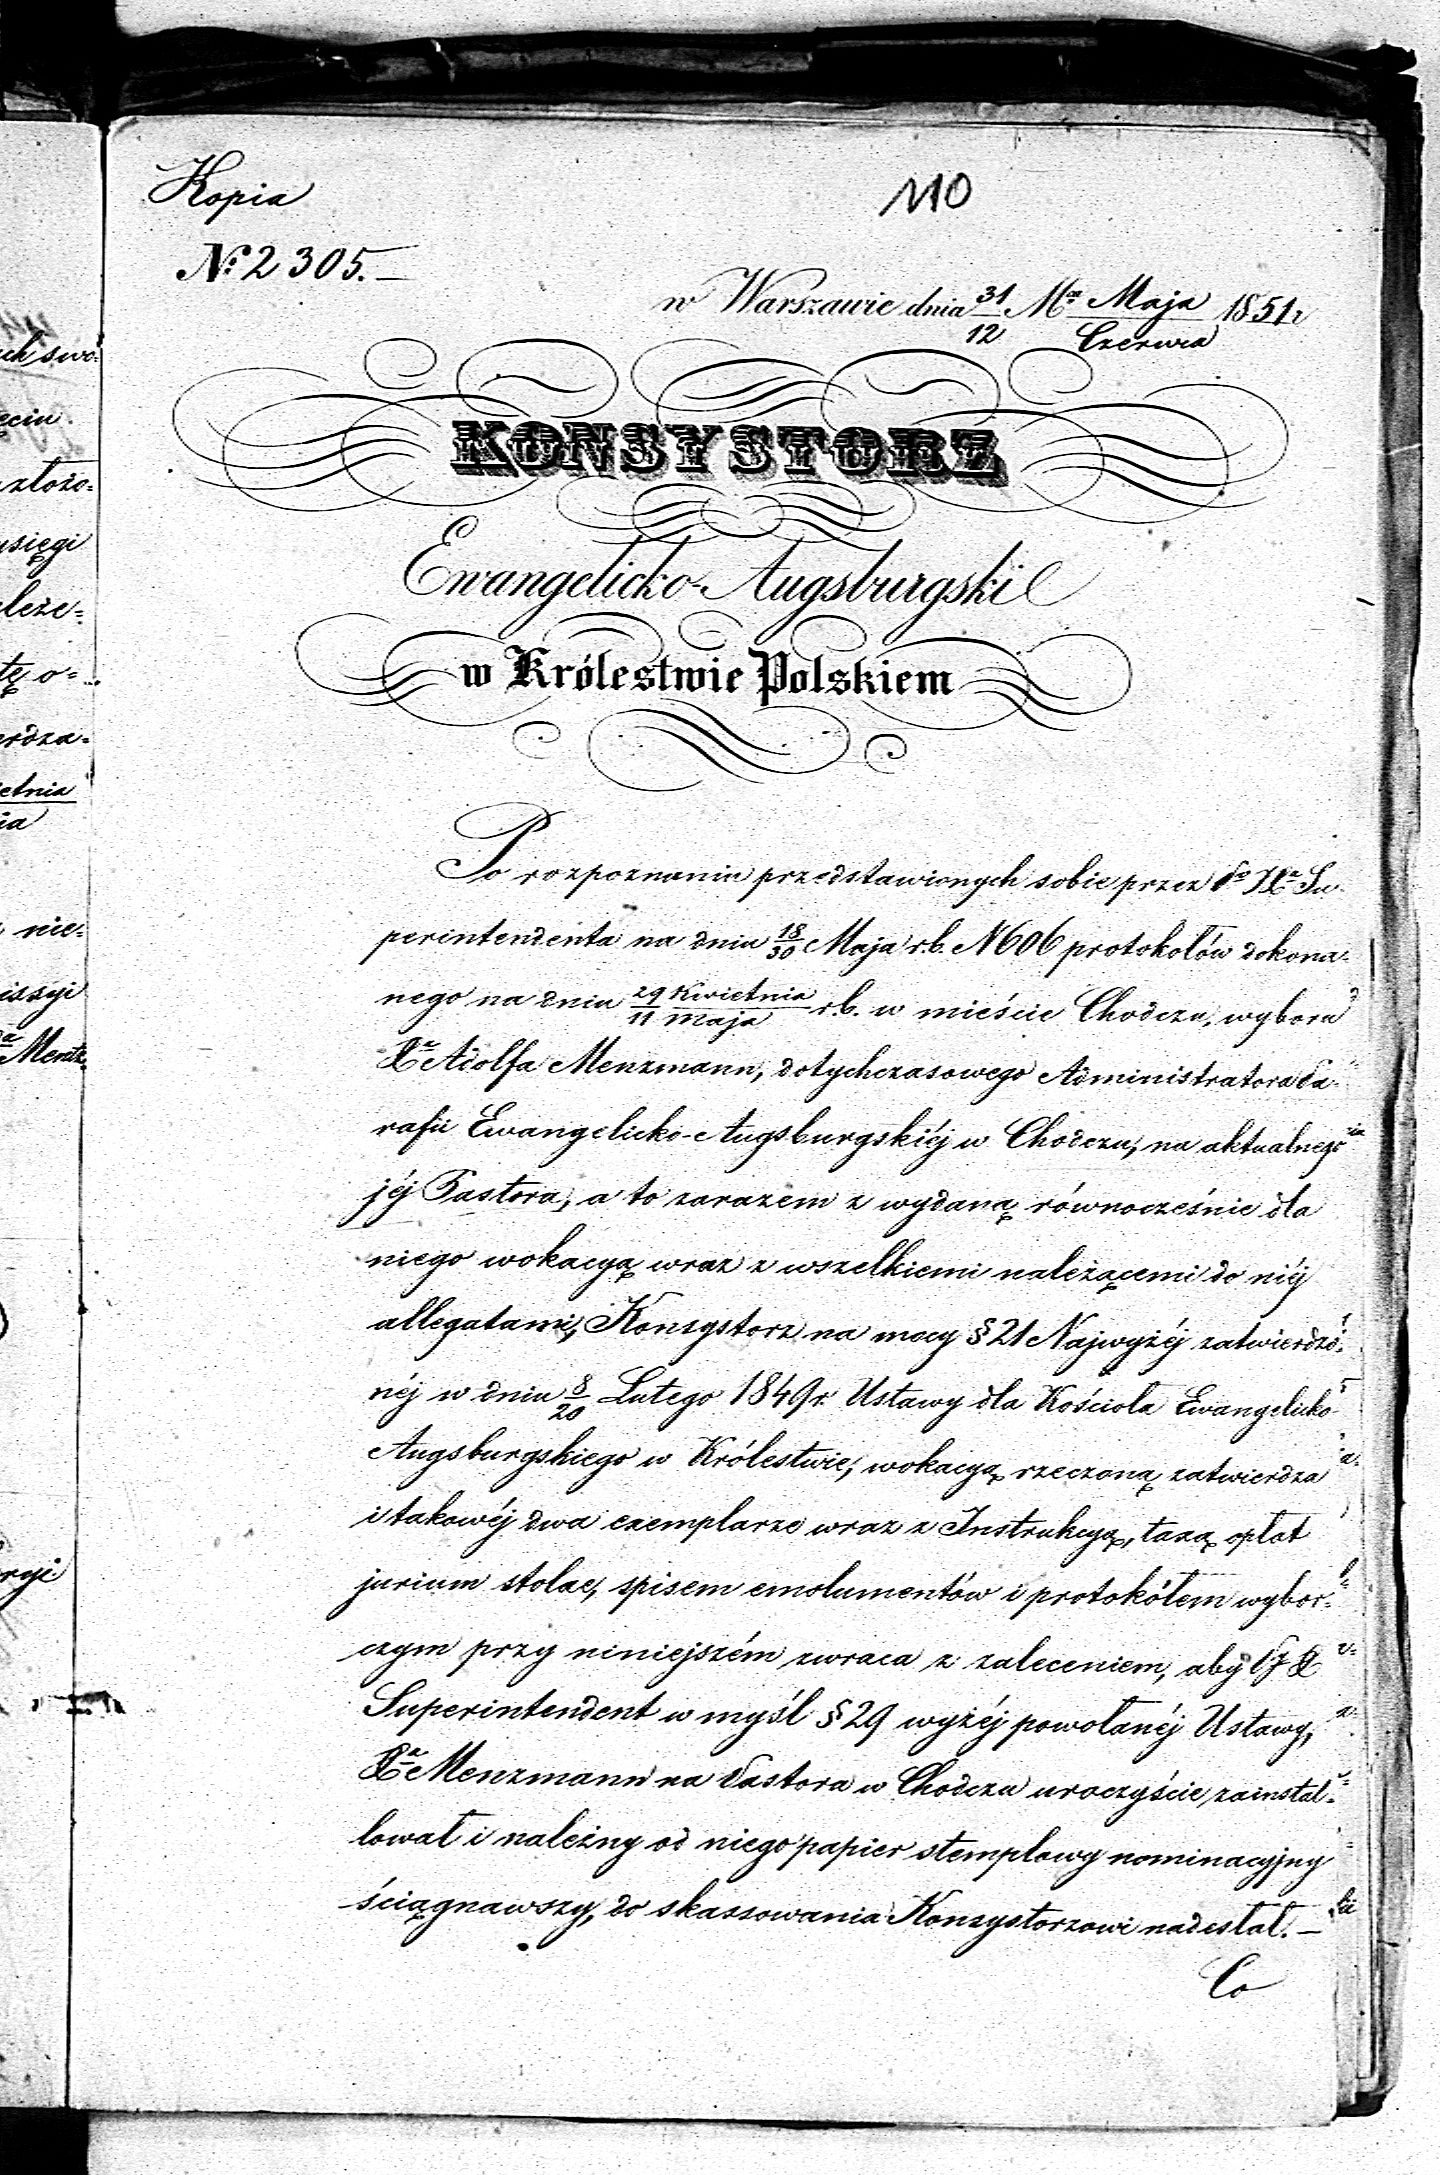 Kopia
110
№ 2305.—
w Warszawie dnia 31/12 Mca Maja/Czerwca 1851 r
KONSYSTORZ
Ewangelicko-Augsburgski
w Królestwie Polskiem
Po rozpoznaniu przedstawionych sobie przez Xa Su-
perintendenta na dniu 18/30 Maja r.b. N 606 protokołów dokona-
nego na dniu 29 Kwietnia/11 Maja r.b. w mieście Chodczu, wyboru
Xa Adolfa Menzmann, dotychczasowego Administratora Pa-
rafii Ewangelicko-Augsburgskiéj w Chodczu, na aktualnego
jéj Pastora, a to zarazem z wydaną równocześnie dla
niego wokacyą wraz z wszelkiemi należącemi do niéj
allegatami, Konsystorz na mocy § 21 Najwyżéj zatwierdzo-
néj w dniu 8/20 Lutego 1849 r. Ustawy dla Kościoła Ewangelicko-
Augsburgskiego w Królestwie, wokacyą rzeczoną zatwierdza
i takowéj dwa exemplarze wraz z Instrukcyą, taxą opłat
jurium stolae, spisem emolumentów i protokółem wybor-
czym przy niniejszém zwraca z zaleceniem, aby X
Superintendent w myśl § 29 wyżéj powołanéj Ustawy,
Xa Menzmann na Pastora w Chodczu uroczyście zainstal-
lował i należny od niego papier stemplowy nominacyjny
ściągnawszy, do skassowania Konsystorzowi nadesłał. —
Co